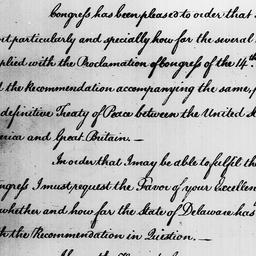 Congress has been pleased to order that
particularly and specially how far the several
plied with the Proclamation of Congress of the 14th
the Recommendation accompanying the same,
definitive Treaty of Peace between the United
erica and Great Britain. —
In order that I may be able to fulfil th
ngress I must request the Favor of your Excellen
whether and how far the State of Delaware has
the Recommendation in Question. —